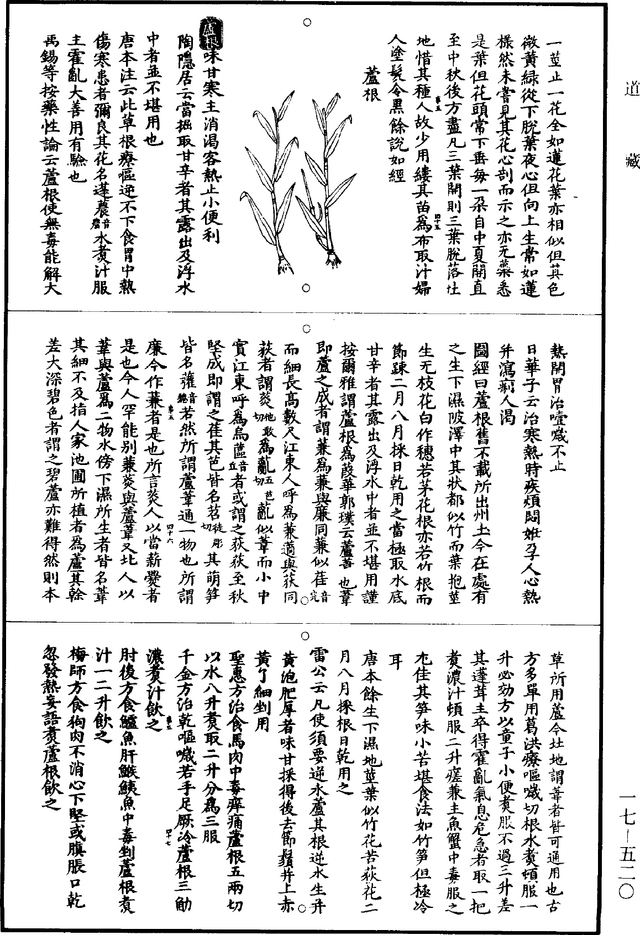 道藏
一莖止一花全如蓮花葉亦相似但其色
微黃綠從下脫葉夜心但向上生常如蓮
樣然未嘗見其花心剖而示之亦无藥悉
是葉但花頭常下垂每一朵自中夏開直
至中秋後方盡凡三葉開則三葉脫落北
地惜其種人故少用縷其苗為布取汁婦
人塗髮令黑餘說如經
蘆根
蘆根味甘寒主消渴客熱止小便利
陶隱居云當掘取甘辛者其露出及浮水
中者並不堪用也
唐本注云此草根療嘔逆不下食胃中熱
傷寒患者彌良其花名蓬蕽音農水煮汁服
主霍亂大善用有驗也
禹錫等按藥性論云蘆根使無毒能解大
熱開胃治噎噦不止
日華子云治寒熱時疾煩悶妊孕人心熱
并瀉痢人渴
圖經曰蘆根舊不載所出州土今在處有
之生下濕陂澤中其狀都似竹而葉抱莖
生无枝花白作穗若茅花根亦若竹根而
節疎二月八月採日乾用之當極取水底
甘辛者其露出及浮水中者並不堪用謹
按爾雅謂蘆根為葭華郭璞云蘆葦也葦
即蘆之成者謂蒹為薕與廉同蒹似萑音完
而細長高數尺江東人呼為蒹藡與荻同
荻者謂菼他敢切為薍五患切薍似葦而小中
實江東呼為烏蓲音丘者或謂之荻荻至秋
堅成即謂之萑其芭皆名芀徒彫切其萌笋
皆名虇音綣若然所謂蘆葦通一物也所謂
廉今作蒹者是也所言菼人以當薪爨者
是也今人罕能別蒹菼與蘆葦又北人以
葦與蘆為二物水傍下濕所生者皆名葦
其細不及指人家池圃所植者為蘆其榦
差大深碧色者謂之碧蘆亦難得然則本
草所用蘆今北地謂葦者皆可通用也古
方多單用葛洪療嘔噦切根水煮頓服一
升必効方以童子小便煮服不過三升差
其蓬茸主卒得霍亂氣息危急者取一把
煮濃汁頓服二升瘥兼主魚蟹中毒服之
尤佳其笋味小苦堪食法如竹笋但極冷
耳
唐本餘生下濕地莖葉似竹花若荻花二
月八月採根日乾用之
雷公云凡使須要逆水蘆其根逆水生并
黃泡肥厚者味甘採得後去節鬚并上赤
黃了細剉用
聖惠方治食馬肉中毒痒痛蘆根五兩切
以水八升煮取二升分為三服
千金方治乾嘔噦若手足厥冷蘆根三觔
濃煮汁飲之
肘後方食鱸魚肝鯸鮧魚中毒剉蘆根煮
汁一二升飲之
梅師方食狗肉不消心下堅或䐜脹口乾
忽發熱妄語煮蘆根飲之
一七—五二〇